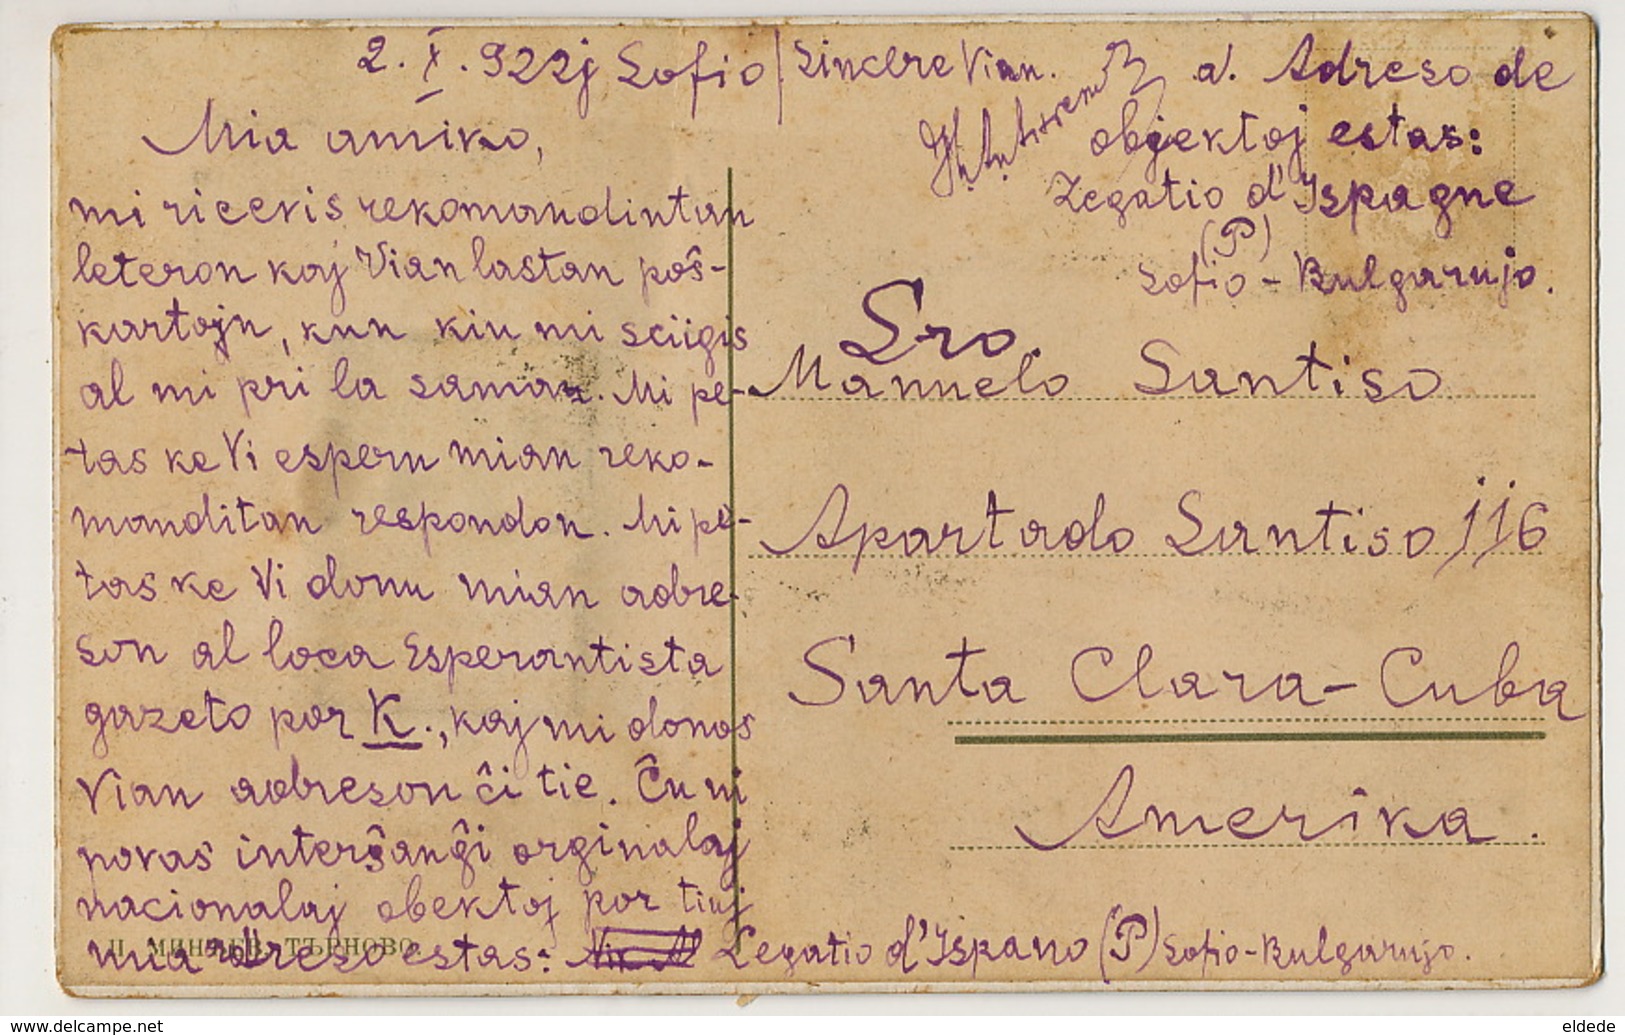 2. X. 922j Sofio / Sincere Vian.
Mia amiko,
mi ricevis rekomandintan
leteron kaj Vian lastan poŝ-
kartojn, kun kiu mi sciigis
al mi pri la saman. Mi pe-
tas ke Vi esperu mian reko-
manditan respondon. Mi pe-
tas ke Vi donu mian adre-
son al loca Esperantista
gazeto por K., kaj mi donos
Vian adreson ĉi tie. Ĉu ni
povas interŝanĝi orginalaj
nacionalaj obektoj por tiuj
mia adreso estas: Legatio d'Ispano (P) Sofio-Bulgarujo.
П. МИНЧЕВ, ТЪРНОВО.
a/. Adreso de
objektoj estas:
Legatio d'Ispagne
(P)
Sofio - Bulgarujo.
Sro.
Manuelo Santiso
Apartado Santiso 116
Santa Clara-Cuba
Amerika.
www.delcampe.net
eldede